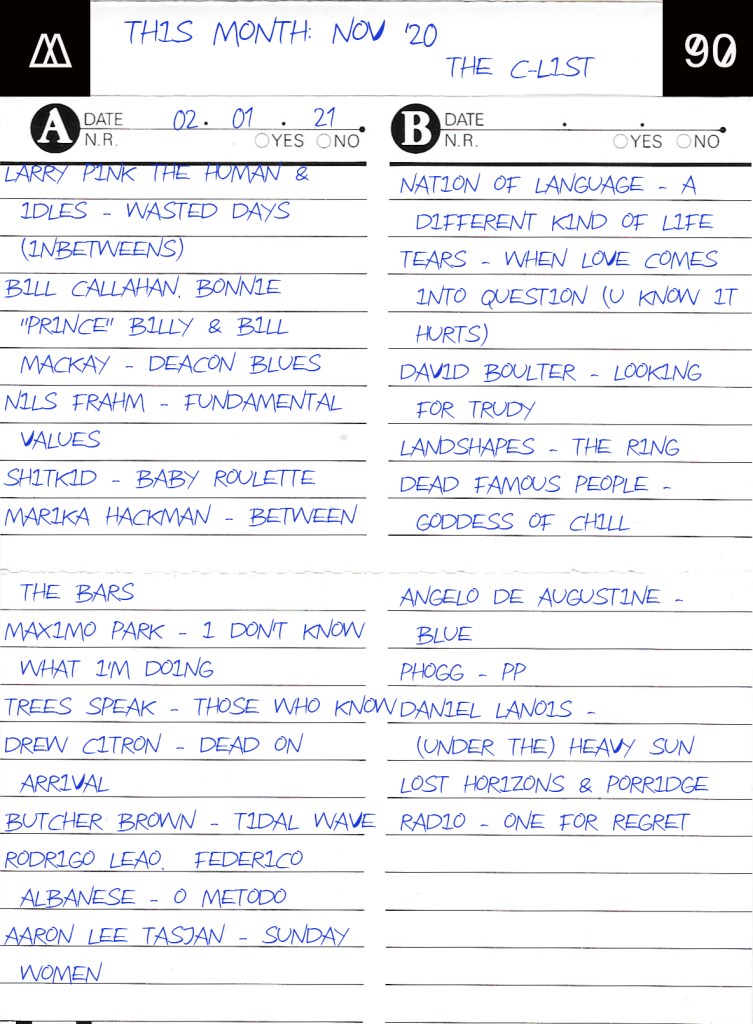 THIS MONTH: NOV '20
THE C-LIST
90
A DATE 02. 01 . 21
N.R. YES NO
LARRY PINK THE HUMAN &
IDLES - WASTED DAYS
(INBETWEENS)
BILL CALLAHAN, BONNIE
"PRINCE" BILLY & BILL
MACKAY - DEACON BLUES
NILS FRAHM - FUNDAMENTAL
VALUES
SHITKID - BABY ROULETTE
MARIKA HACKMAN - BETWEEN
THE BARS
MAXIMO PARK - I DON'T KNOW
WHAT I'M DOING
TREES SPEAK - THOSE WHO KNOW
DREW CITRON - DEAD ON
ARRIVAL
BUTCHER BROWN - TIDAL WAVE
RODRIGO LEAO, FEDERICO
ALBANESE - O METODO
AARON LEE TASJAN - SUNDAY
WOMEN
B DATE . .
N.R. YES NO
NATION OF LANGUAGE - A
DIFFERENT KIND OF LIFE
TEARS - WHEN LOVE COMES
INTO QUESTION (U KNOW IT
HURTS)
DAVID BOULTER - LOOKING
FOR TRUDY
LANDSHAPES - THE RING
DEAD FAMOUS PEOPLE -
GODDESS OF CHILL
ANGELO DE AUGUSTINE -
BLUE
PHOGG - PP
DANIEL LANOIS -
(UNDER THE) HEAVY SUN
LOST HORIZONS & PORRIDGE
RADIO - ONE FOR REGRET